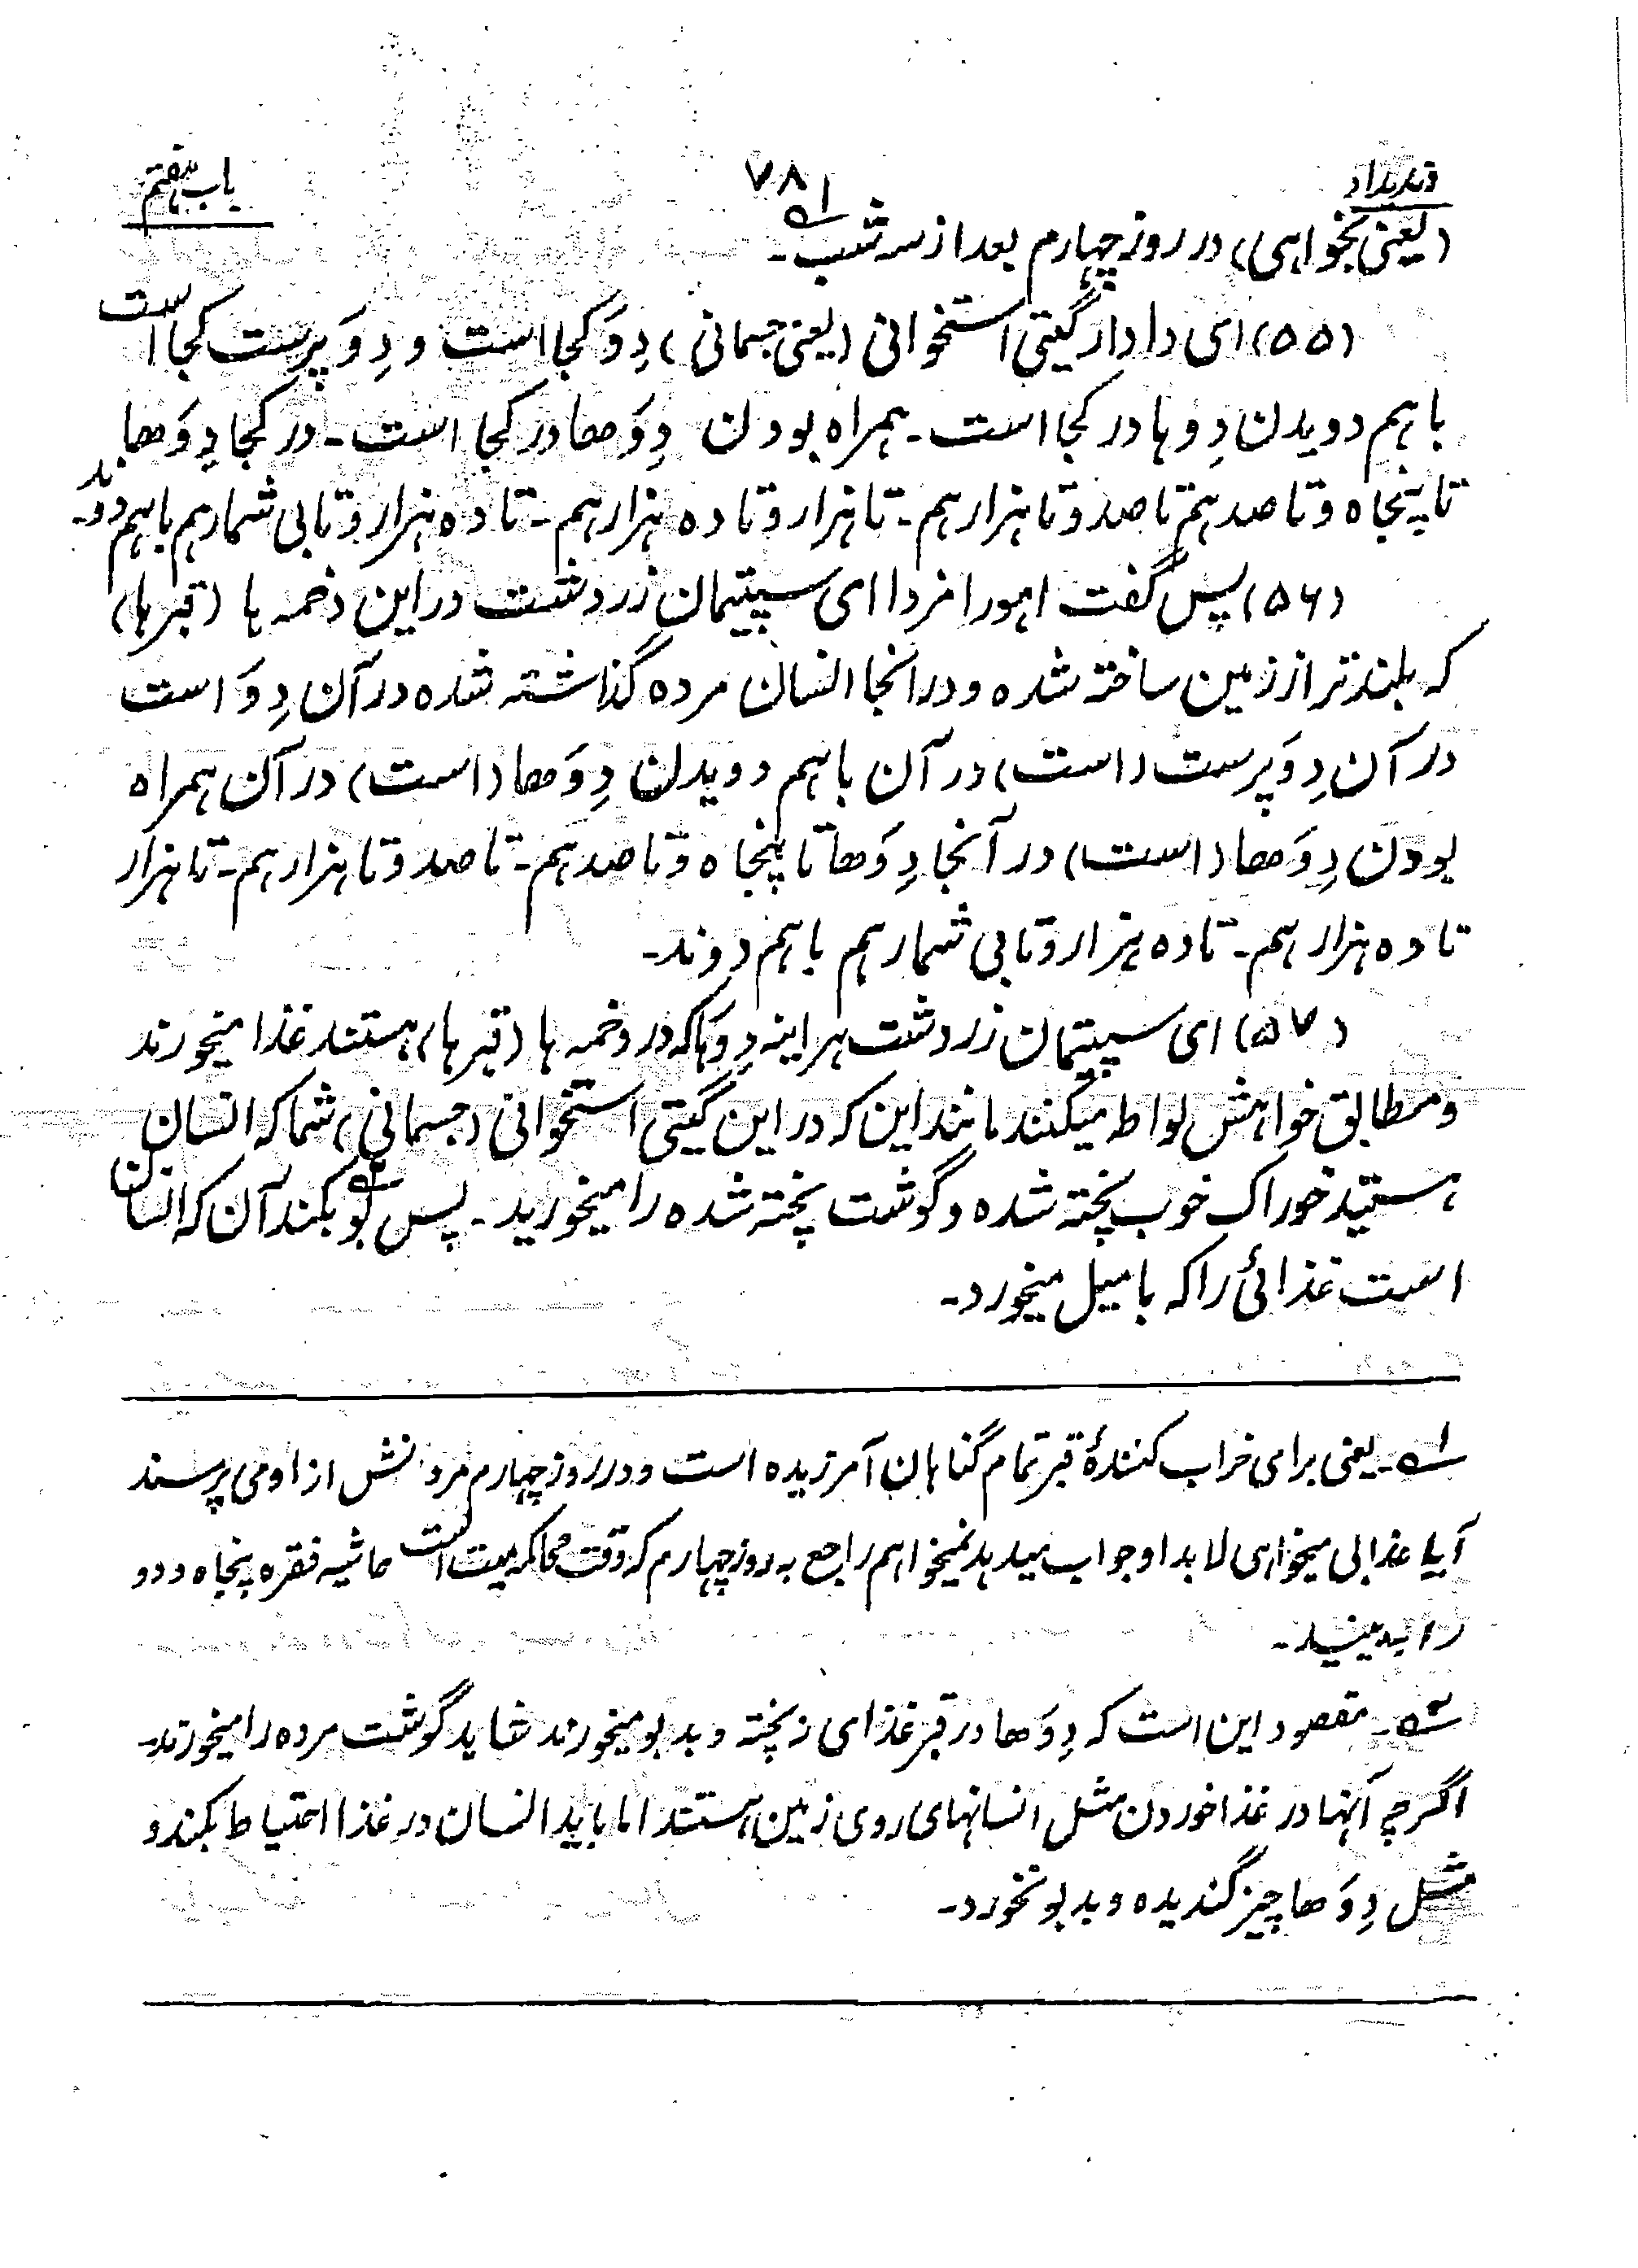 وندیداد ۷۸ باب هفتم
(یعنی نخواهی) در روز چهارم بعد از سه شب۱ـ
(۵۵) ای دادار گیتی استخوانی (یعنی جسمانی) دِوَ کجا است و دِوَ پرست کجا است
با هم دویدن دِوها در کجا است ـ همراه بودن دِوَها در کجا است ـ در کجا دِوَها
تا پنجاه و تا صد هم تا صد و تا هزار هم ـ تا هزار و تا ده هزار هم ـ تا ده هزار و تا بی شمار هم با هم دوند ـ
(۵۶) پس گفت اهورامزدا ای سپیتمان زردشت در این دخمه ها (قبرها)
که بلندتر از زمین ساخته شده و در انجا انسان مرده گذاشته شده در آن دِوَ است
در آن دِوَ پرست (است) در آن با هم دویدن دِوَها (است) در آن همراه
بودن دِوَها (است) در آنجا دِوَها تا پنجاه و تا صد هم ـ تا صد و تا هزار هم ـ تا هزار
تا ده هزار هم ـ تا ده هزار و تا بی شمار هم با هم دوند ـ
(۵۷) ای سپیتمان زردشت هر اینه دِوَها که در دخمه ها (قبرها) هستند غذا میخورند
و مطابق خواهش لواط میکنند مانند این که در این گیتی استخوانی (جسمانی) شما که انسان
هستید خوراک خوب پخته شده و گوشت پخته شده را میخورید ـ پس بو۲ بکند آن که انسان
است غذائی را که با میل میخورد ـ
۱ ـ یعنی برای خراب کنندهٔ قبر تمام گناهان آمرزیده است و در روز چهارم مردنش از او می پرسند
آیا عذابی میخواهی لابد او جواب میدهد نمیخواهم راجع به روز چهارم که وقت محاکمه میت است حاشیه فقره پنجاه و دو
را ببینید ـ
۲ ـ مقصود این است که دِوَها در قبر غذای نپخته و بدبو میخورند شاید گوشت مرده را میخورند ـ
اگر چه آنها در غذا خوردن مثل انسانهای روی زمین هستند اما باید انسان در غذا احتیاط بکند و
مثل دِوَها چیز گندیده و بدبو نخورد ـ